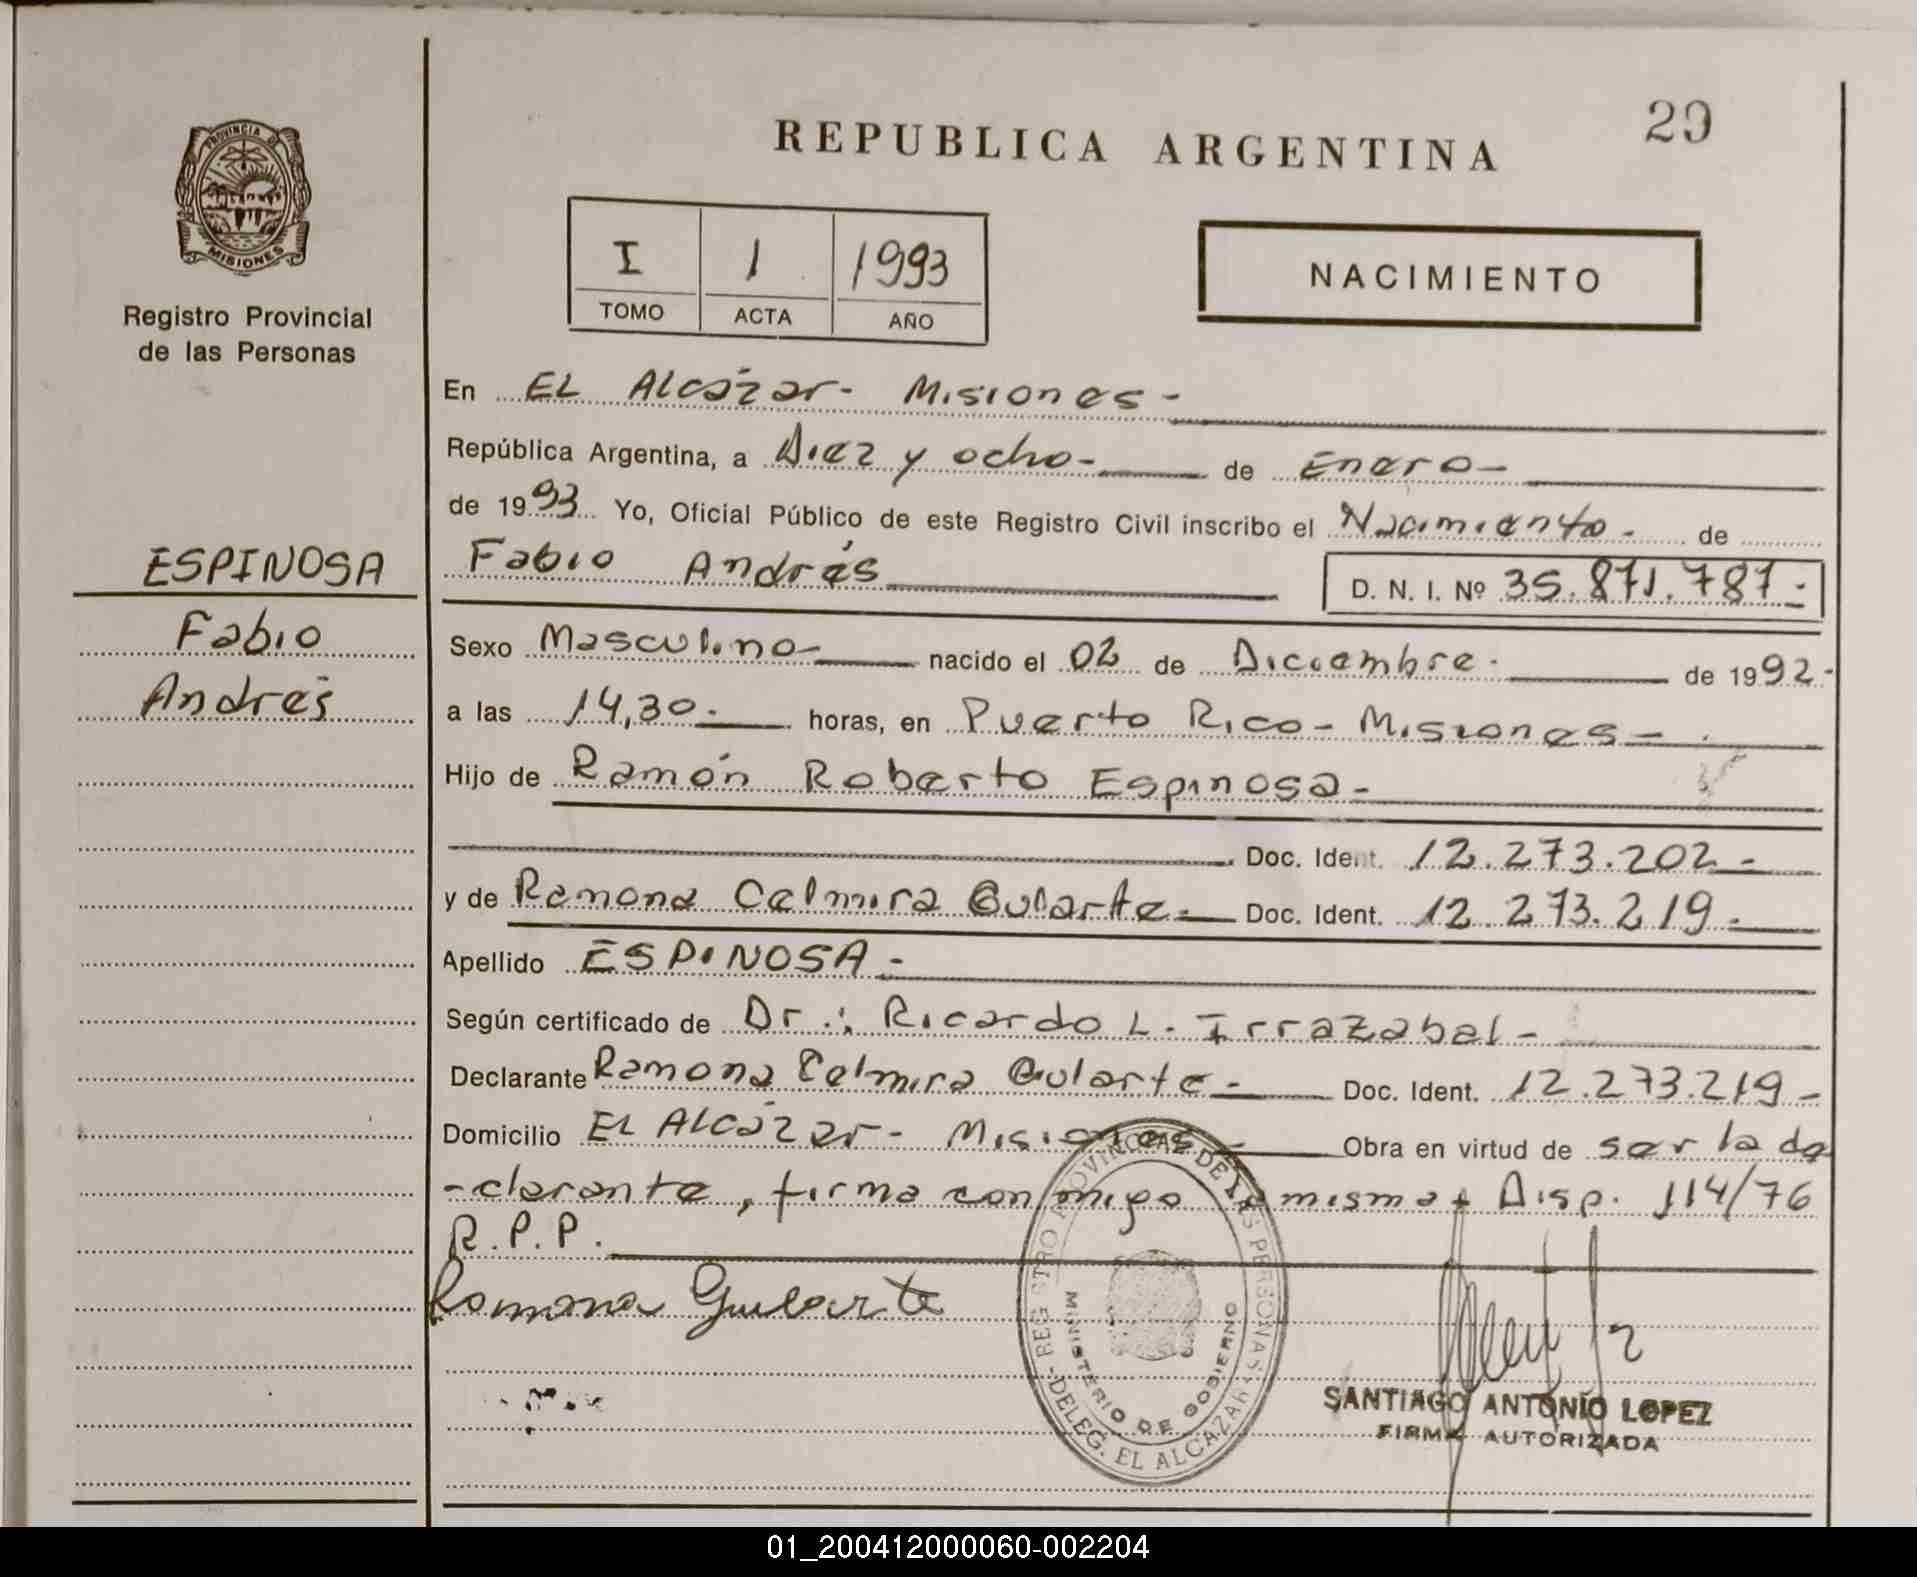 PROVINCIA DE
MISIONES
Registro Provincial
de las Personas
ESPINOSA
Fabio
Andrés
REPUBLICA ARGENTINA
29
I
1
1993
TOMO
ACTA
AÑO
NACIMIENTO
En EL Alcázar - Misiones -
República Argentina, a Diez y ocho - de Enero -
de 1993 Yo, Oficial Público de este Registro Civil inscribo el Nacimiento - de
Fabio Andrés
D. N. I. Nº 35.871.787 -
Sexo Masculino - nacido el 02 de Diciembre - de 1992 -
a las 14,30 - horas, en Puerto Rico - Misiones -
Hijo de Ramón Roberto Espinosa -
Doc. Ident. 12.273.202 -
y de Ramona Celmira Gularte - Doc. Ident. 12.273.219 -
Apellido ESPINOSA -
Según certificado de Dr.: Ricardo L. Irrazabal -
Declarante Ramona Celmira Gularte - Doc. Ident. 12.273.219 -
Domicilio EL Alcázar - Misiones - Obra en virtud de ser la de
-clarante, firma conmigo misma + Disp. 114/76
R.P.P.
Ramona Gularte
REGISTRO PROVINCIAL DE LAS PERSONAS
MINISTERIO DE GOBIERNO
DELEG. EL ALCAZAR
SANTIAGO ANTONIO LOPEZ
FIRMA AUTORIZADA
01_200412000060-002204